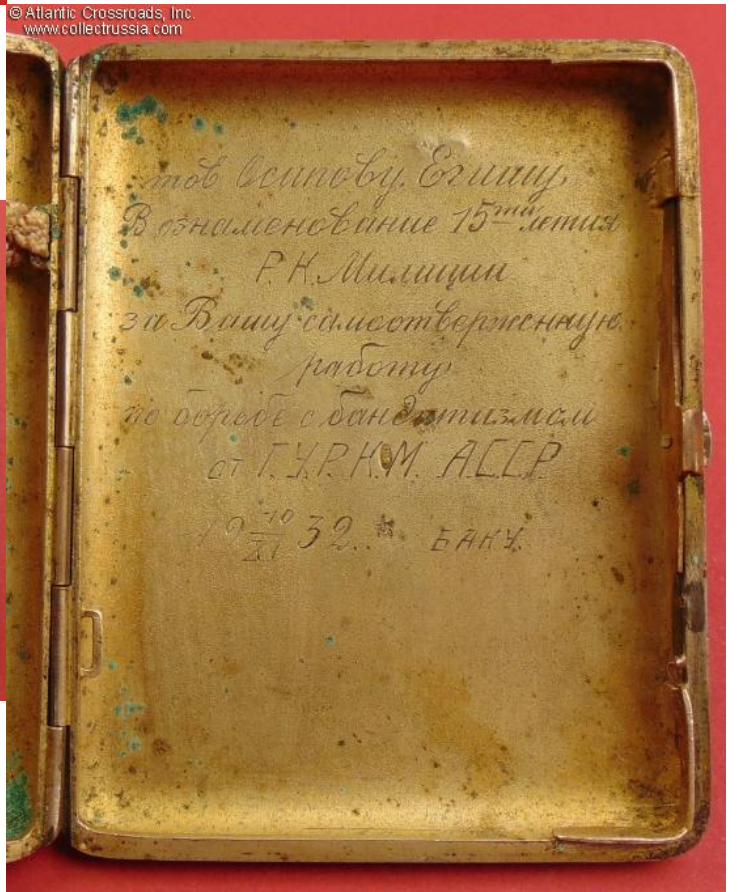 © Atlantic Crossroads, Inc.
www.collectrussia.com
тов Осипову Егишу
В ознаменование 15ти летия
Р.К.Милиции
за Вашу самоотверженную
работу
по борьбе с бандитизмом
от Г.У.Р.К.М. А.С.С.Р.
19 10/XI 32. БАКУ.